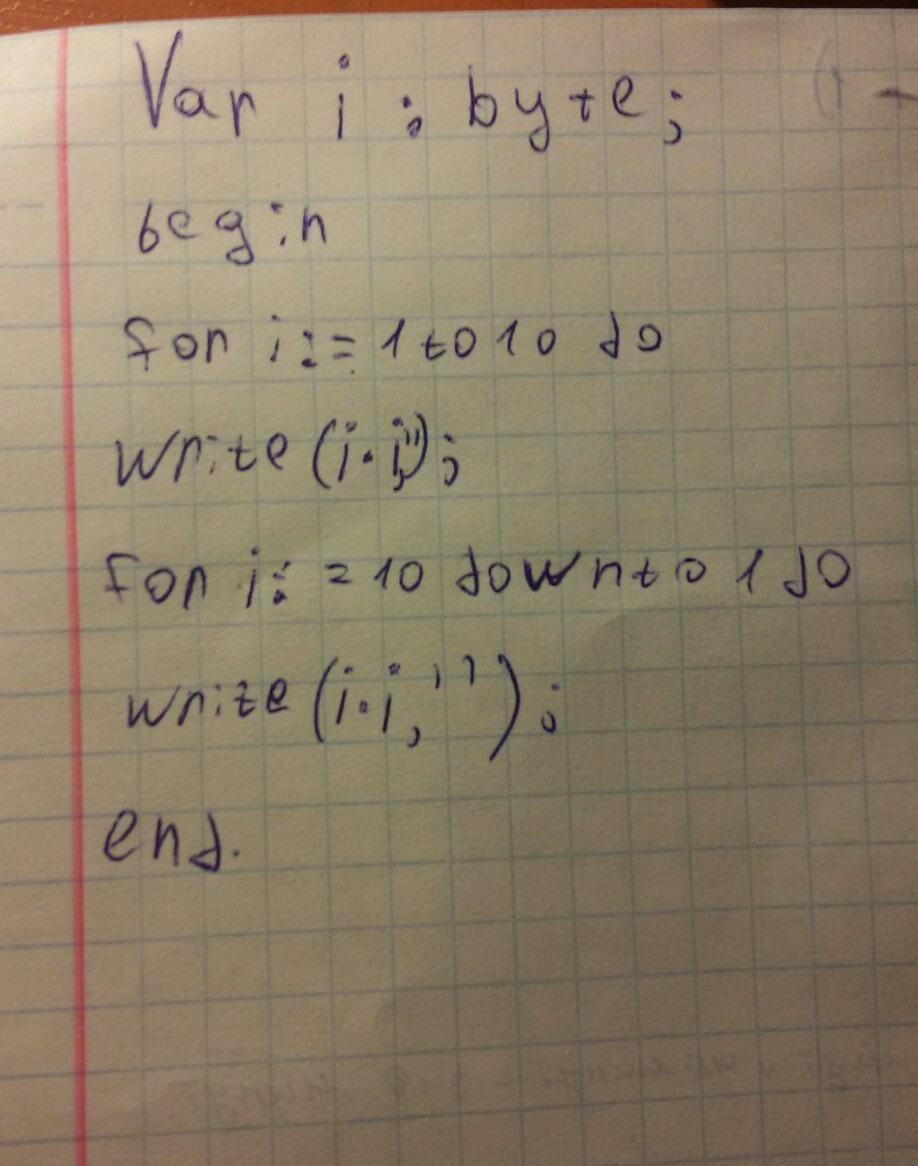 Var i : byte;
begin
for i:= 1 to 10 do
write (i·i,'');
for i:= 10 downto 1 do
write (i·i, ' ');
end.